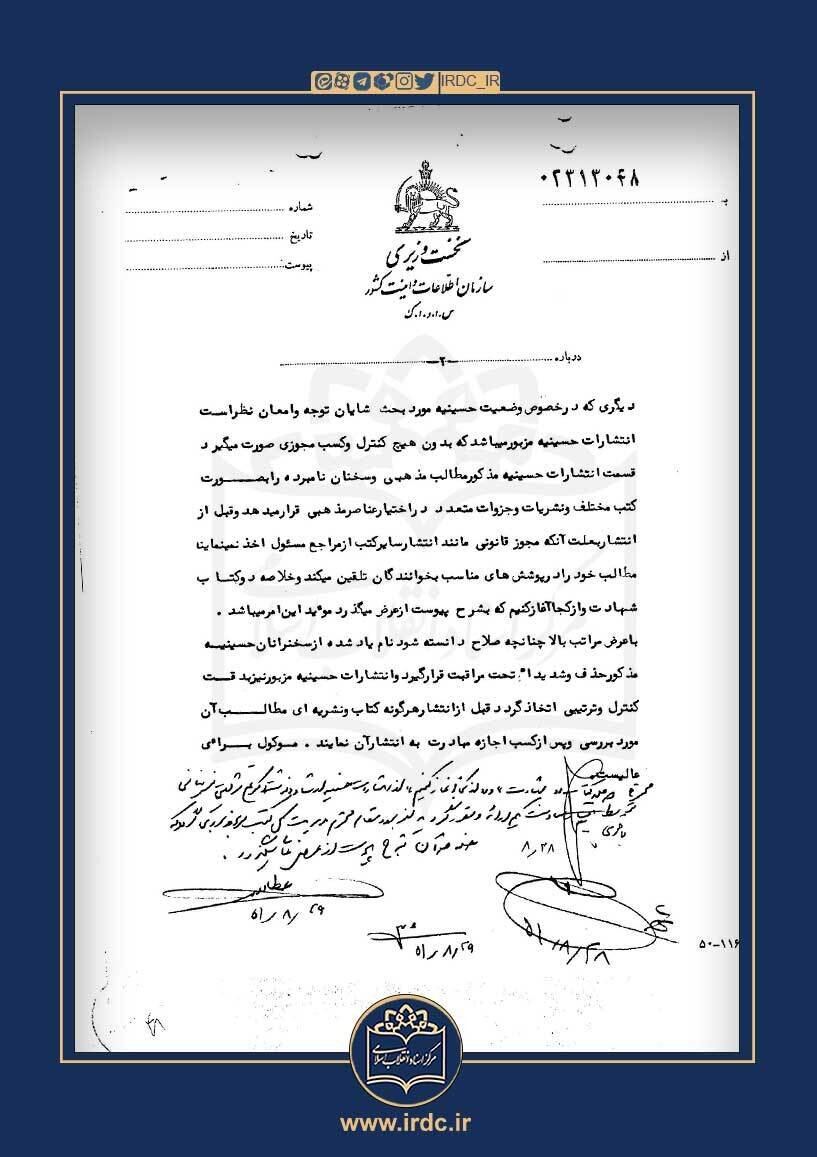 IRDC_IR
۰۲۳۱۳۰۴۸
به
شماره
از
تاریخ
پیوست
نخست وزیری
سازمان اطلاعات و امنیت کشور
س.ا.و.ا.ک
درباره
-۲-
دیگری که درخصوص وضعیت حسینیه مورد بحث شایان توجه وامعان نظراست
انتشارات حسینیه مزبورمیباشد که بدون هیچ کنترل وکسب مجوزی صورت میگیرد
قسمت انتشارات حسینیه مذکورمطالب مذهبی وسخنان نامبرده رابصورت
کتب مختلف ونشریات وجزوات متعدد در اختیارعناصرمذهبی قرارمیدهد وقبل از
انتشاربعلت آنکه مجوز قانونی مانند انتشارسایرکتب ازمراجع مسئول اخذ نمینماینا
مطالب خود رادرپوشش های مناسب بخوانندگان تلقین میکند وخلاصه دوکتاب
شهادت وازکجاآغازکنیم که بشرح پیوست ازعرض میگذرد موید این امرمیباشد .
باعرض مراتب بالا چنانچه صلاح دانسته شود نام یاد شده ازسخنرانان حسینیه
مذکورحذف وشدیدا" تحت مراقبت قرارگیرد وانتشارات حسینیه مزبورنیزبدقت
کنترل وترتیبی اتخاذ گردد قبل ازانتشارهرگونه کتاب ونشریه ای مطالب آن
مورد بررسی وپس ازکسب اجازه مبادرت به انتشارآن نمایند . موکول برای
عالیست
۸/۲۸
عطاپور
۵۱/۸/۲۹
۵۱/۸/۲۸
۵۱/۸/۲۹
۵۰-۱۱۶
مرکز اسناد انقلاب اسلامی
www.irdc.ir